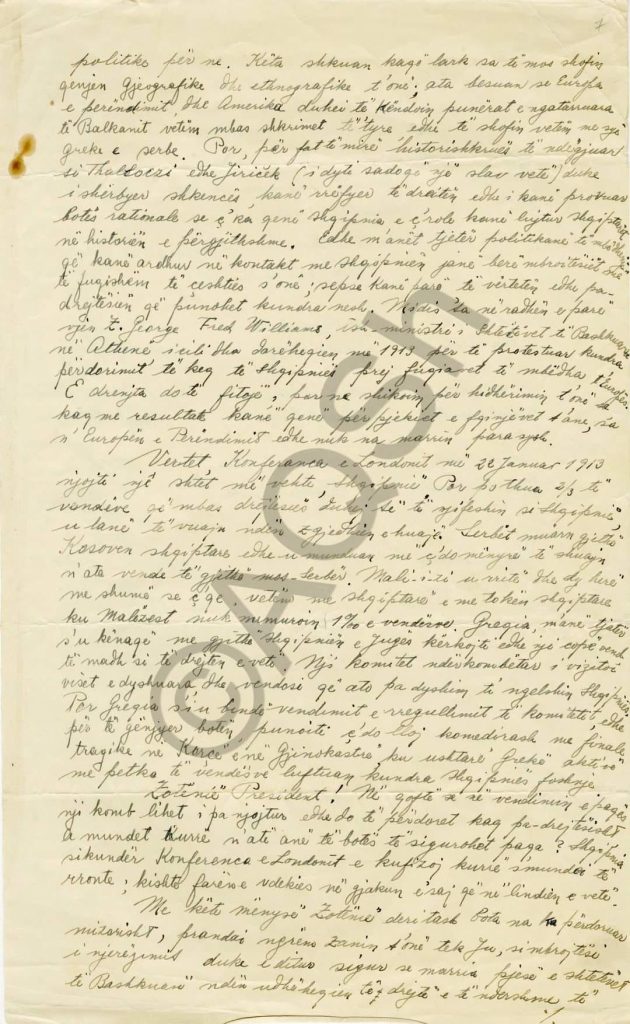 politike për ne. Këta shkuan kaqë lark sa të mos shofin
gjenjen gjeografike dhe ethnografike t'onë; ata besuan se Europa
e perëndimit, dhe Amerika duhei të këndoin punërat e ngatërruara
të Balkanit vetëm mbas shkrimet të tyre edhe të shofin vetëm me syë
greke e serbe. Por, për fat të mirë historishkruës të ndëgjuar
si Thallóczi edhe Jiriček (i dyti sadoqë një slav vetë) duke
i shërbyer shkencës kanë rrëfyer të drejtën edhe i kanë provuar
botës rationale se ç'ka qenë Shqipnia e ç'role kanë lujtur shqiptarët
në historiën e përgjithshme. Edhe m'anët tjetër politikanë të mbëdhej
që kanë ardhur në kontakt me Shqipnien janë bërë mbrojtësit
të fuqishëm të çeshtiës s'onë; sepse kanë parë të vërtetën edhe pa-
drejtësiën që punohet kundra nesh. Midis 'ta në radhën e parë
vjen Z. George Fred Williams, ish-ministri i Shtetëvet të Bashkuara
në Athënë i cili dha dorëheqien më 1913 për të protestuar kundra
përdorimit të keq të Shqipniës prej fuqiavet të mbëdha t'Europës.
E drenjta do të fitojë, por ne shikoim për hidhërimin t'onë sa
kaq me resultate kanë qenë përpjekiet e fqinjëvet t'ane, sa
n'Europën e Perëndimit edhe nuk na marrin parasysh.
Vërtet, Konferanca e Londonit më 22 Januar 1913
njojti një shtet më vehte, Shqipnië. Por po thua 2/3 të
vendëve që mbas drejtësiës duhej të të njifeshin si Shqipnië,
u lanë të vuajn nden zgjedhën e huajë. Serbët muarn gjithë
Kosovën shqiptare edhe u munduan me ç'do mënyrë të shuajn
n'ata vende të gjithë mos-Serbët. Mali-i-zi u rrit dhe dy herë
me shumë se ç'qe, vetëm me shqiptarë e me tokën shqiptare
ku Malëzest nuk numuroin 1% e vendësve. Greqia, m'anë tjatër
s'u kënaqë me gjithë Shqipniën e Jugës kërkojti edhe një copë vend
të madh si të drejtën e vetë. Një komitet ndërkombëtar i vizitoi
viset e dyshuara dhe vendosi që ato pa dyshim t'i ngelshin Shqipniës.
Por Greqia s'iu bindë vendimit e rregullimit të komitetit edhe
për të gënjyer botën punoiti ç'do lloj komedirash me finale
tragike në Korçë e në Gjinokastrë ku ushtarë Grekë
me petka të vendësve luftuan kundra Shqipniës foshnje.
Zotënië President! Në qoftë se në vendimin e paqës
një komb lihet i pa njojtur edhe do të përdoret kaq pa-drejtësisht
a mundet kurrë n'atë anë të botës të sigurohet paqa? Shqipnia
sikundër Konferenca e Londonit e kufizoj kurrë s'mundej të
rronte; kishte farën e vdekies në gjakun e saj që në lindien e vetë.
Me këtë mënyrë Zotënië deri tash bota na ka përdoruar
mizorisht, prandai ngrëmë zanin t'onë tek Ju, si mbrojtësi
i njerëzimit duke e ditur sigur se marria pjesë e shtetëvet
të Bashkuarë ndën udhëheqien të drejtë e të ndërshme të